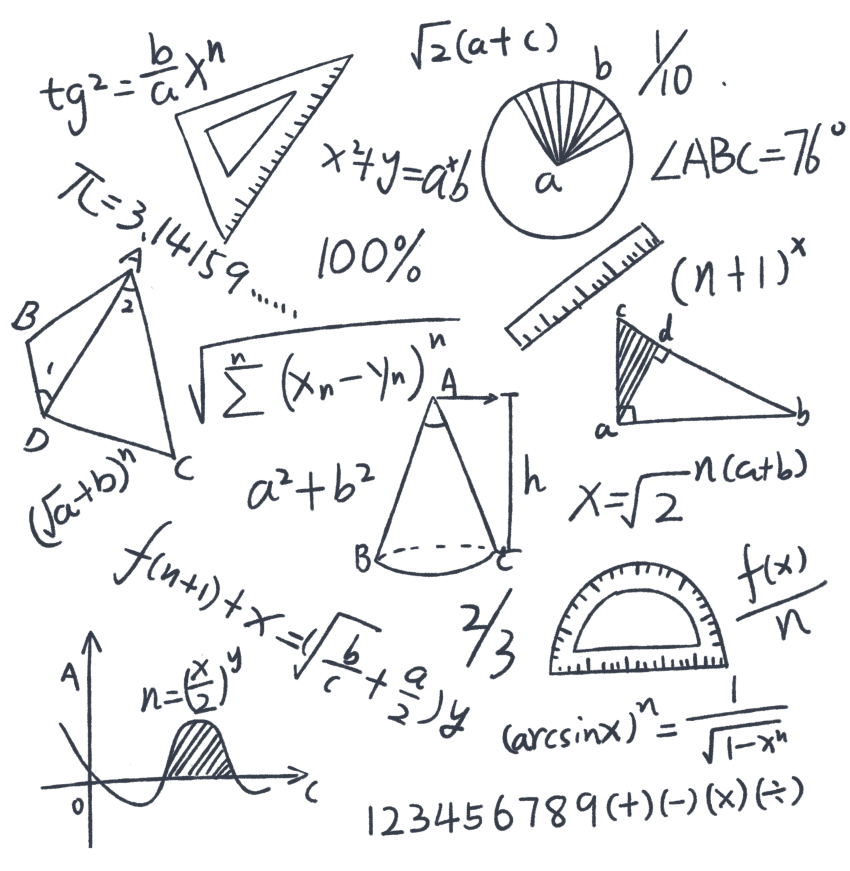 √2(a+c)
tg²=b/a xⁿ
b
1/10
a
x²+y=a⁺b
∠ABC=76°
π=3.14159......
100%
(n+1)ˣ
A
2
B
1
D
C
√∑ⁿ(xₙ-yₙ)ⁿ
c
d
a
b
A
h
B
C
(√a+b)ⁿ
a²+b²
x=√2ⁿ⁽ᵃ⁺ᵇ⁾
f(n+1)+x=(√b/c+a/2)y
2/3
f(x)/n
A
n=(x/2)ʸ
0
C
(arcsinx)ⁿ=1/√1-xⁿ
123456789(+)(-)(x)(÷)